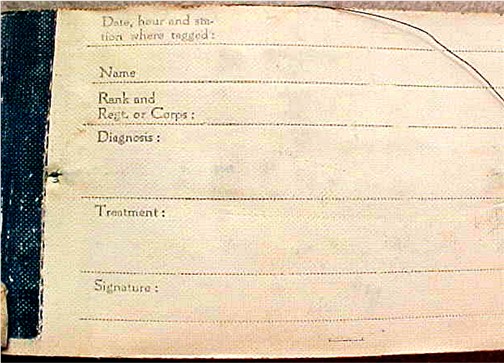 Date, hour and sta-
tion where tagged:
Name
Rank and
Regt. or Corps :
Diagnosis :
Treatment :
Signature :